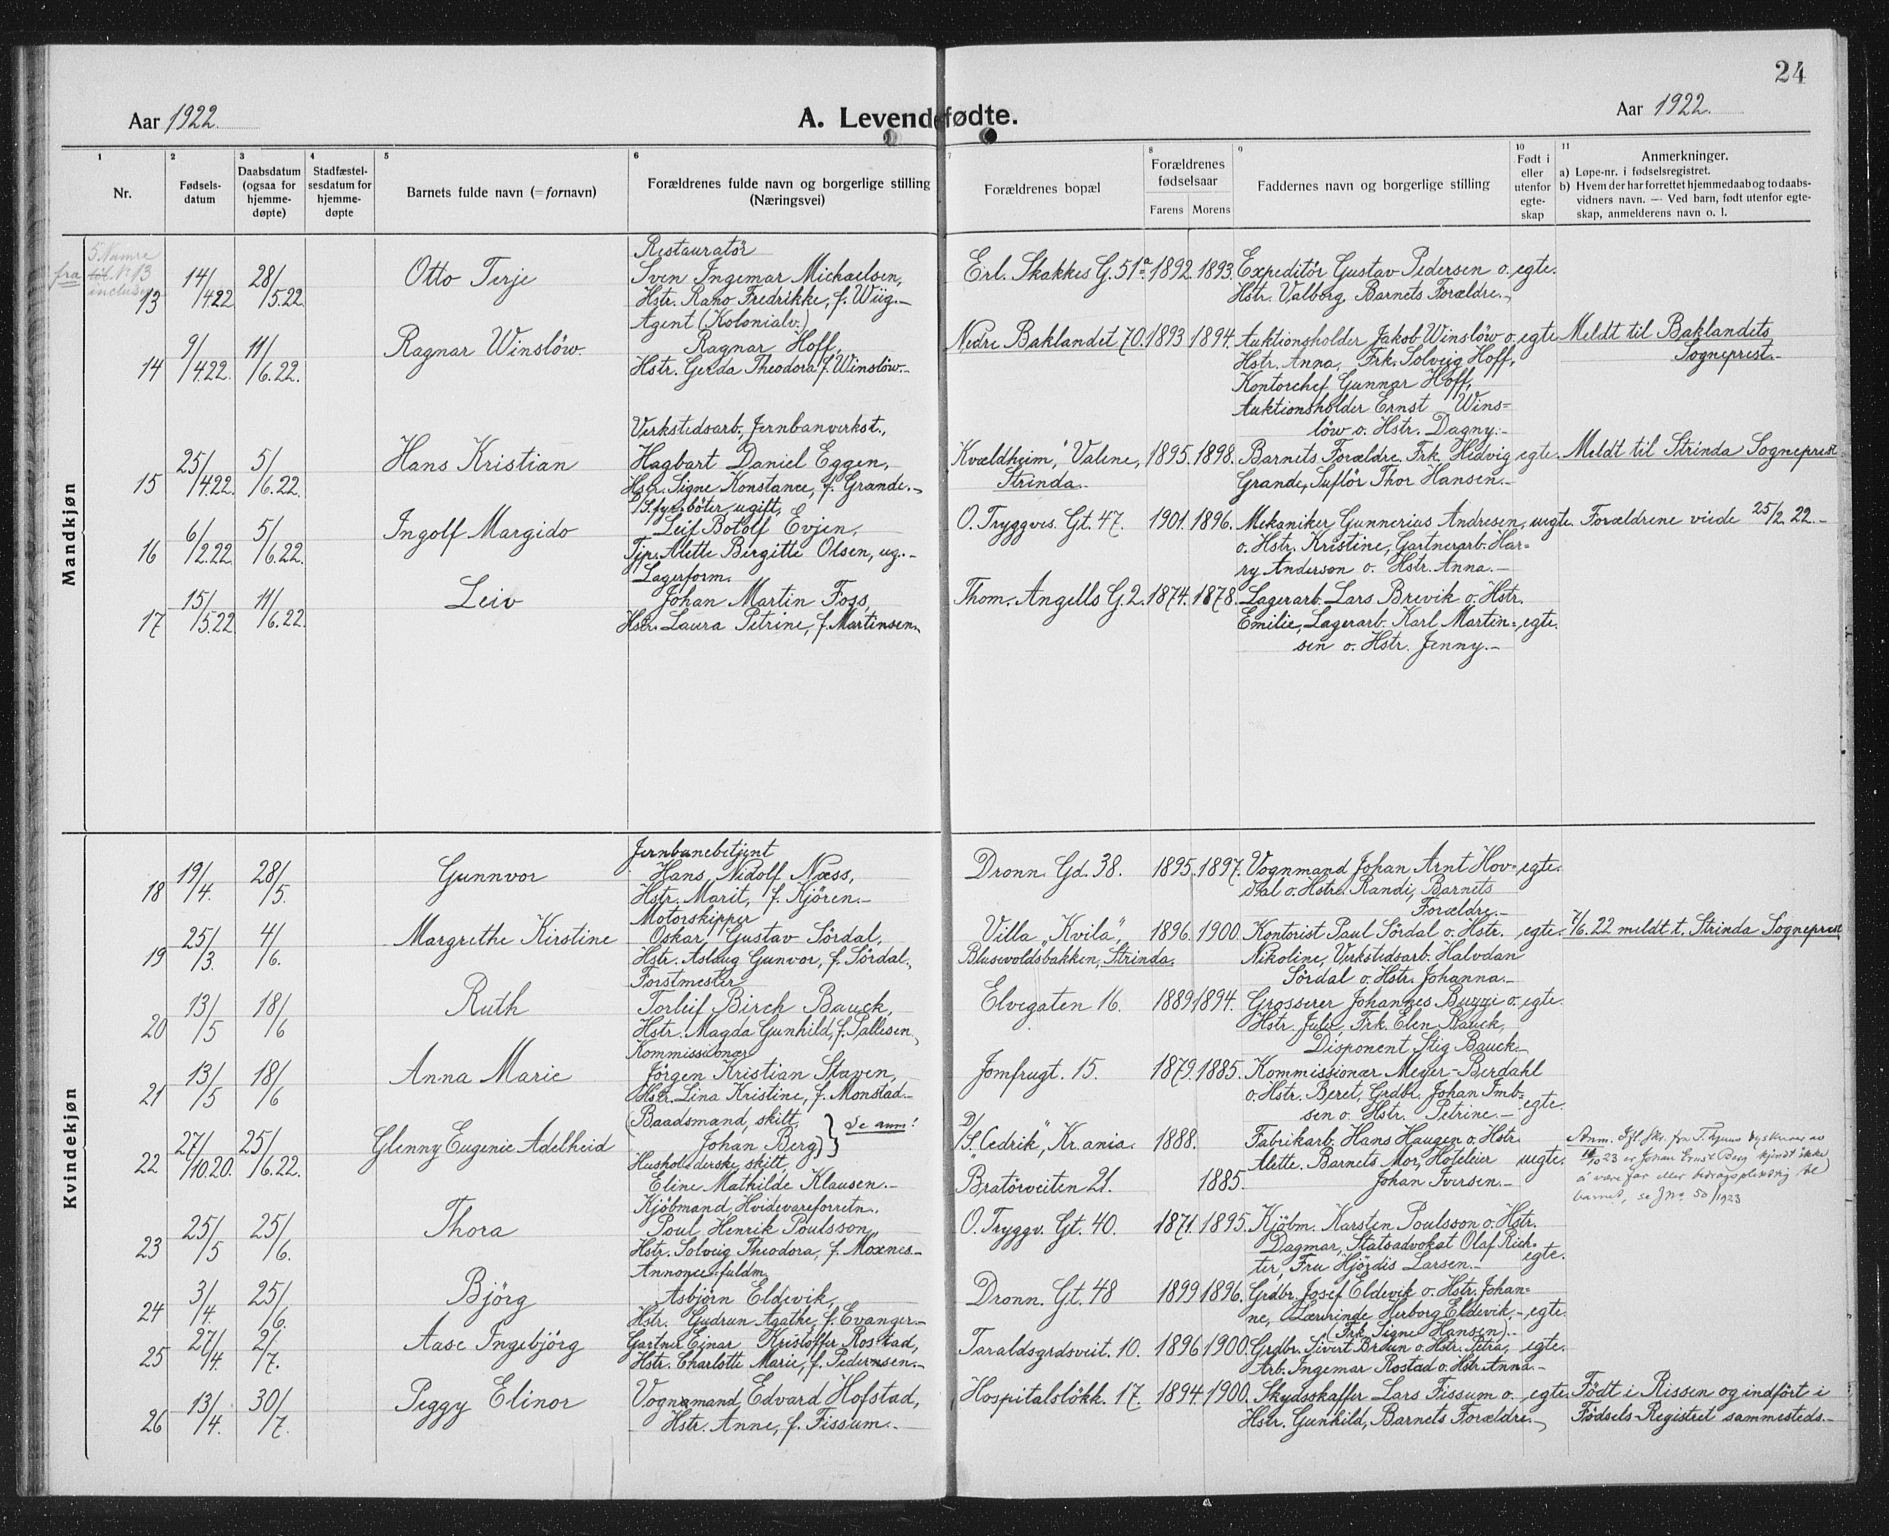 24
Aar 1922.
A. Levendefødte.
Aar 1922.
1 2 3 4 5 6 7 8 9 10 11
Nr.
Fødsels-
datum
Daabsdatum
(ogsaa for
hjemme-
døpte)
Stadfæstel-
sesdatum for
hjemme-
døpte
Barnets fulde navn (= fornavn)
Forældrenes fulde navn og borgerlige stilling
(Næringsvei)
Forældrenes bopæl
Forældrenes
fødselsaar
Farens Morens
Faddernes navn og borgerlige stilling
Født i
eller
utenfor
egte-
skap
Anmerkninger.
a) Løpe-nr. i fødselsregistret.
b) Hvem der har forrettet hjemmedaab og to daabs-
vidners navn. — Ved barn, født utenfor egte-
skap, anmelderens navn o. l.
Mandkjøn
5 Numre
fra til No 13
inclusive
13 14/4 22 28/5 22. Otto Terje
Restauratör
Sven Ingemar Michaelsen,
Hstr. Raho Fredrikke, f. Wiig.-
Erl. Skakkes G. 51a 1892. 1893.
Expeditör Gustav Pedersen o. egte.
Hstr. Valborg, Barnets Forældre.-
14 9/4 22. 11/6. 22. Ragnar Winslöw.
Agent (Kolonialv.)
Ragnar Hoff,
Hstr. Gerda Theodora f. Winslöw.-
Nedre Baklandet 70. 1893 1894.
Auktionsholder Jakob Winslöw o. egte
Hstr. Anna, Frk. Solveig Hoff,
Kontorchef Gunnar Hoff,
Auktionsholder Ernst Wins=
löw o. Hstr. Dagny.-
Meldt til Baklandets
Sogneprest.-
15 25/4 22. 5/6. 22. Hans Kristian
Verkstedsarb., Jernbanverkst.,
Hagbart Daniel Eggen,
Hstr. Signe Konstance, f. Grande.-
"Kvældheim," Valene, 1895. 1898.
Strinda.
Barnets Forældre, Frk. Hedvig egte.
Grande, Suflör Thor Hansen.-
Meldt til Strinda Sogneprest
16 6/2 22. 5/6. 22. Ingolf Margido
fyrböter, ugift,
Leif Botolf Evjen,
Tjp. Alette Birgitte Olsen, ug.-
O. Tryggves. Gt. 47. 1901. 1896.
Mekaniker Gunnerius Andresen, uegte.
o. Hstr. Kristine, Gartnerarb. Har=
ry Anderson o. Hstr. Anna.-
Forældrene viede 25/2. 22.-
17 15/5 22 11/6. 22. Leiv
Lagerform.
Johan Martin Foss,
Hstr. Laura Petrine, f. Martinsen.
Thom. Angells G. 2. 1874. 1878.
Lagerarb. Lars Brevik o. Hstr.
Emilie, Lagerarb. Karl Martin= egte.
sen o. Hstr. Jenny.-
Kvindekjøn
18 19/4. 28/5. Gunnvor
Jernbanebetjent
Hans Nidolf Næss,
Hstr. Marit, f. Kjören.-
Dronn. Gd. 38. 1895. 1897.
Vognmand Johan Arnt Hov= egte.
dal o. Hstr. Randi, Barnets
Forældre.-
19 25/3. 4/6. Margrethe Kirstine
Motorskipper
Oskar Gustav Sördal,
Hstr. Aslaug Gunvor, f. Sördal.
Villa "Kvila", 1896. 1900.
Blusevoldsbakken, Strinda.
Kontorist Paul Sördal o. Hstr. egte.
Nikoline, Verkstedsarb. Halvdan
Sördal o. Hstr. Johanna.-
7/6. 22 meldt t. Strinda Sogneprest
20 13/5 18/6 Ruth
Forstmester
Torleif Birch Bauck,
Hstr. Magda Gunhild, f. Pallesen
Elvegaten 16. 1889 1894.
Grosserer Johannes Buggi o. egte.
Hstr. Jula, Frk. Elen Bauck,
Disponent Stig Bauck.-
21 13/5 18/6 Anna Marie
Kommissionær
Jörgen Kristian Staven,
Hstr. Lina Kristine, f. Monstad.-
Jomfrugt. 15. 1879. 1885.
Kommissionær Meyer-Berdahl
o. Hstr. Beret, Grdbr. Johan Imb=
sen o. Hstr. Petrine.- egte.
22 27/10. 20. 25/6. 22. Glenny Eugenie Adelheid
(Baadsmand, skilt,
Johan Berg) } Se anm!
Husholderske, skilt,
Eline Mathilde Klausen.-
D/S. "Cedrik", Kr.ania. 1888.
Bratörveiten 21. 1885.
Fabrikarb. Hans Haugen o. Hstr.
Alette. Barnets Mor, Hoteleier uegte.
Johan Iversen.-
Anm. Ifl. skr. fra T.hjems byskriver av
10/10 23 er Johan Ernst Berg kjendt ikke
å være far eller bidragspliktig til
barnet, se J No. 50/1923
23 25/5 25/6. Thora
Kjöbmand, Hvidevareforretn.,
Poul Henrik Poulsson,
Hstr. Solveig Theodora, f. Moxnes-
O. Tryggv. Gt. 40. 1871. 1895.
Kjöbm. Karsten Poulsson o. Hstr.
Dagmar, Statsadvokat Olaf Rich=
ter, Fru Hjördis Larsen.- egte.
24 3/4. 25/6. Björg
Annonce-fuldm.
Asbjörn Eldevik,
Hstr. Gudrun Agathe, f. Evanger.-
Dronn. Gt. 48 1899 1896.
Grdbr. Josef Eldevik o. Hstr. Johan=
ne, Lærerinde Herborg Eldevik,- egte.
(Frk. Signe Hansen).-
25 27/4. 2/7. Aase Ingebjörg
Gartner Einar Kristoffer Rostad,
Hstr. Charlotte Marie, f. Pedersen.-
Taraldsgrdsveit. 10. 1896 1900.
Grdbr. Sivert Braun o. Hstr. Petra, egte.
Arb. Ingemar Rostad o. Hstr. Anna.-
26 13/4. 30/7. Peggy Elinor
Vognmand Edvard Hofstad,
Hstr. Anne, f. Fissum.-
Hospitalslökk. 17. 1894. 1900.
Skydsskaffer Lars Fissum o. egte.
Hstr. Gunhild, Barnets Forældre.-
Födt i Rissen og indfört i
Födsels-Registret sammesteds.-